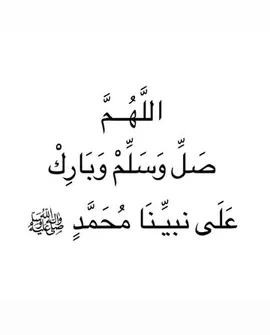 اللَّهُـمَّ
صَلِّ وَسَلِّمْ وَبَارِكْ
عَلَى نبيِّـنَا مُحَمَّدٍ ﷺ